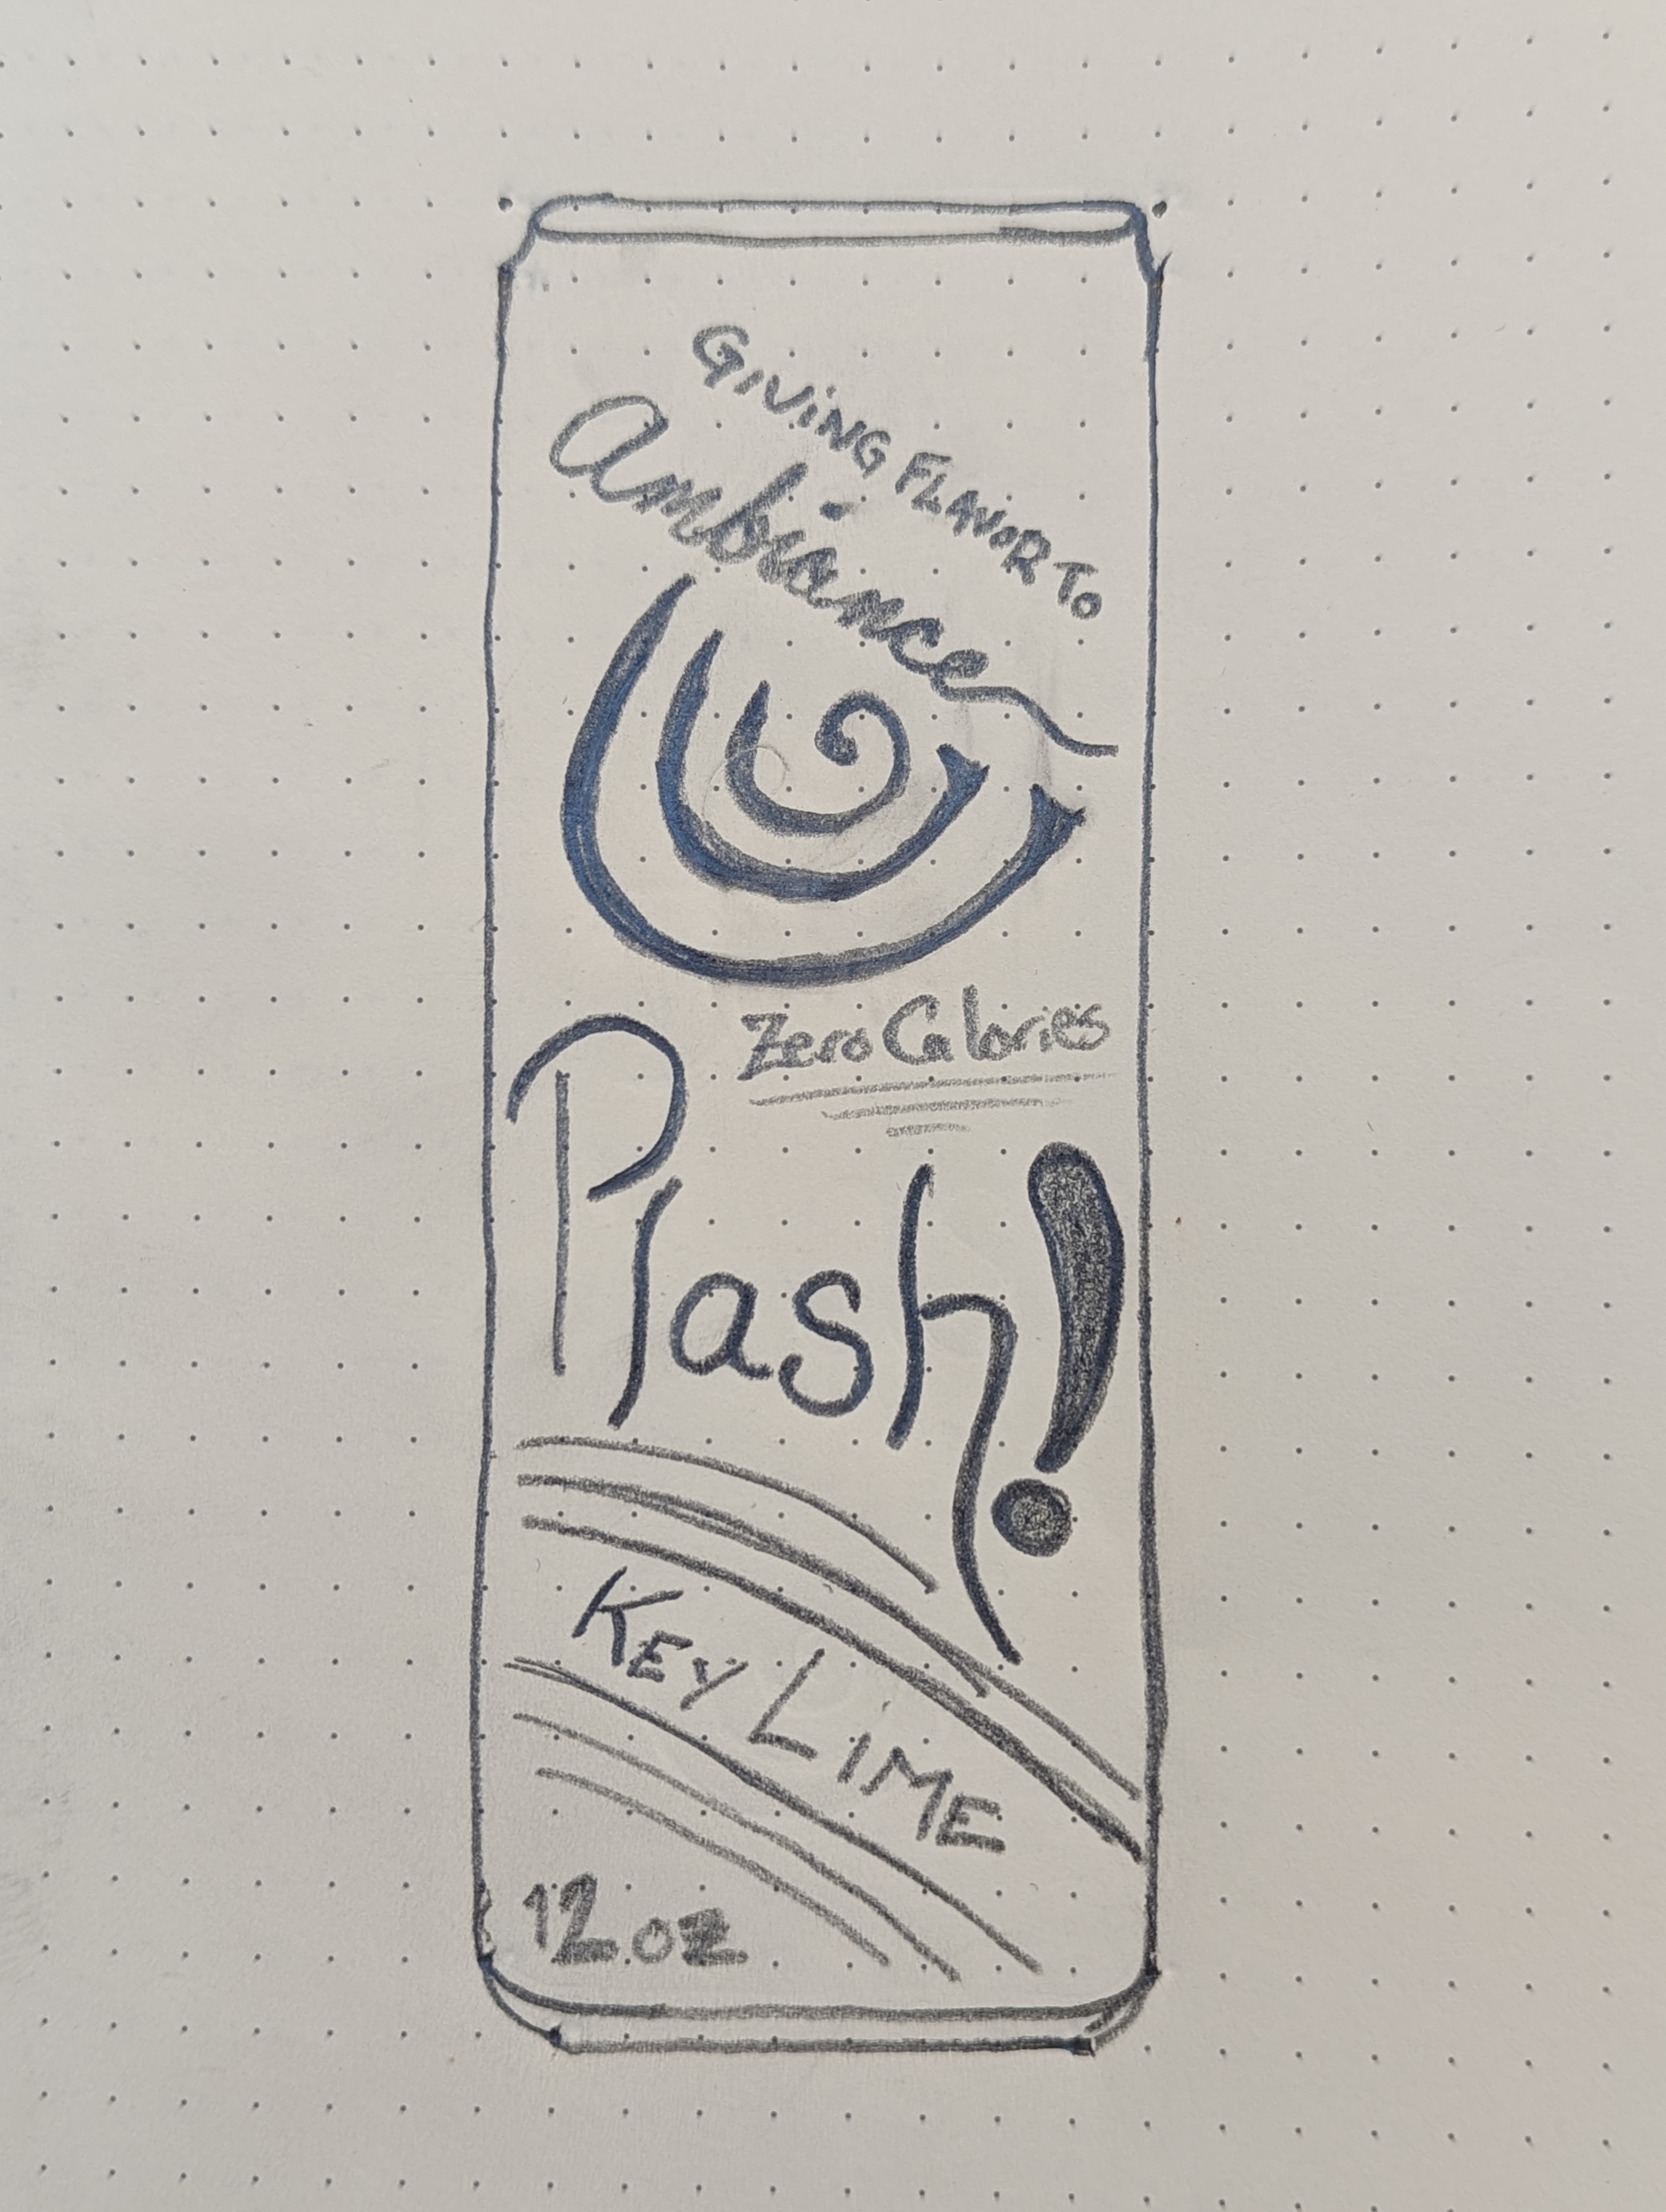 GiViNG FLAVOR To
Ambiance
Zero Calories
Plash!
KEY LiME
12 oz